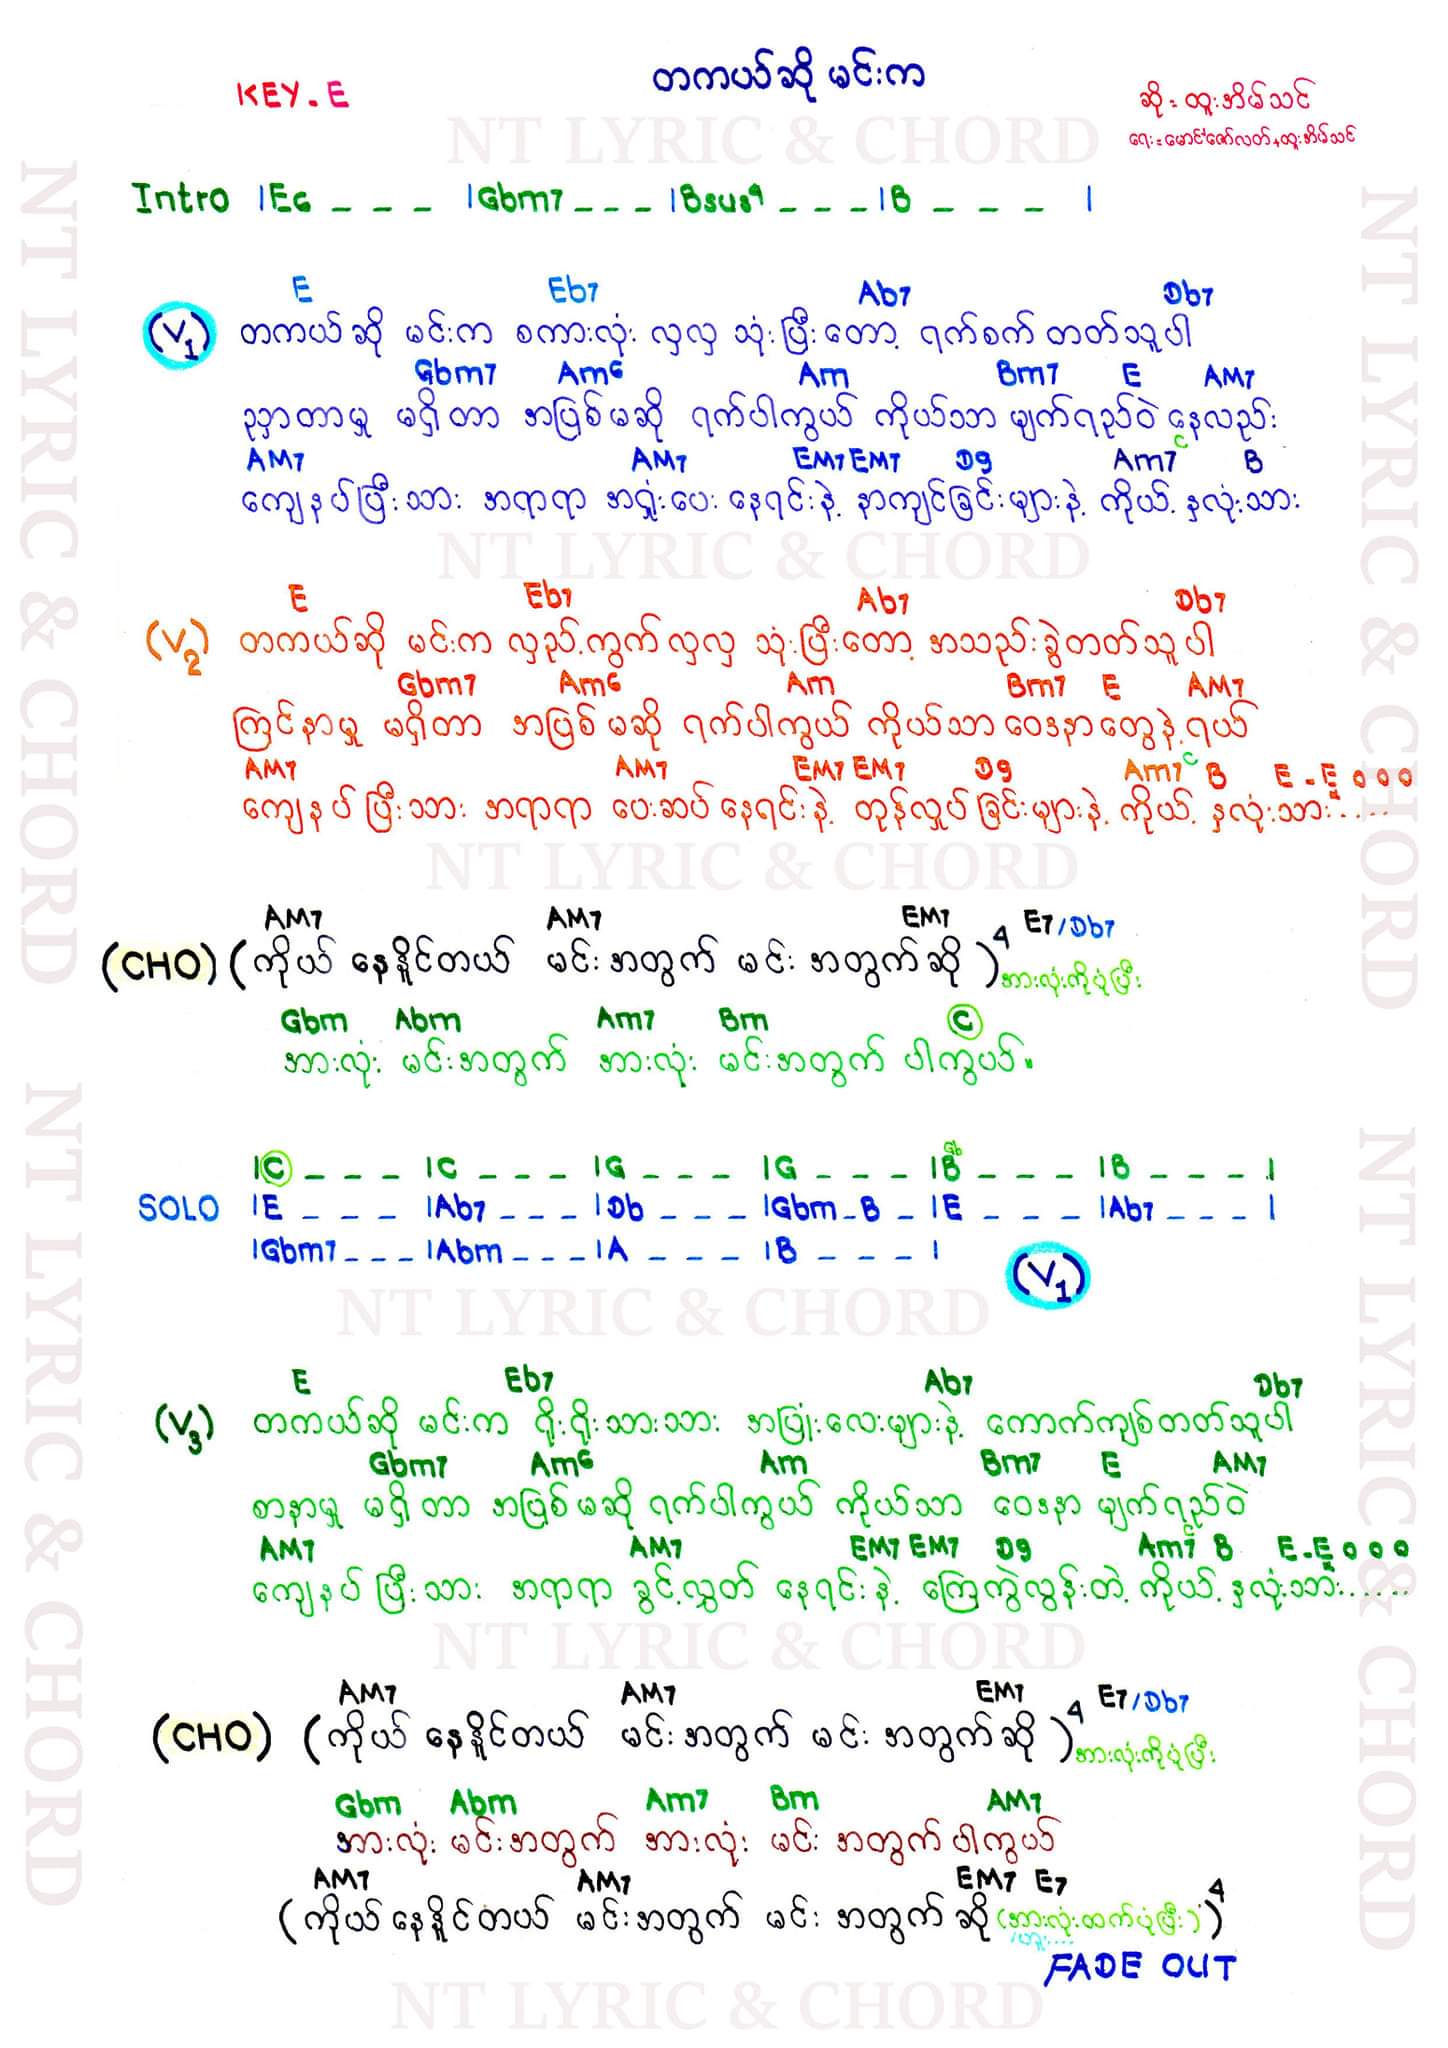 တကယ်ဆို မင်းက
KEY. E
ဆို = ထူးအိမ်သင်
ရေး = မောင်ဇော်လတ် + ထူးအိမ်သင်
NT LYRIC & CHORD
Intro |E6 _ _ _ |Gbm7 _ _ _ |Bsus4 _ _ _ |B _ _ _ |
E Eb7 Ab7 Db7
(V1) တကယ်ဆို မင်းက စကားလုံး လှလှ သုံးပြီးတော့ ရက်စက်တတ်သူပါ
Gbm7 Am6 Am Bm7 E AM7
ဥာတာမှု မရှိတာ အပြစ်မဆို ရက်ပါကွယ် ကိုယ်သာ မျက်ရည်ဝဲ နေလည်း
AM7 AM7 EM7 EM7 D9 Am7 C B
ကျေနပ်ပြီးသား အရာရာ အရှုံးပေး နေရင်းနဲ့ နာကျင်ခြင်းများနဲ့ ကိုယ့် နှလုံးသား
NT LYRIC & CHORD
E Eb7 Ab7 Db7
(V2) တကယ်ဆို မင်းက လှည့်ကွက်လှလှ သုံးပြီးတော့ အသည်းခွဲတတ်သူပါ
Gbm7 Am6 Am Bm7 E AM7
ကြင်နာမှု မရှိတာ အပြစ်မဆို ရက်ပါကွယ် ကိုယ်သာ ဝေဒနာတွေနဲ့ ရယ်
AM7 AM7 EM7 EM7 D9 Am7 C B E - E o o o
ကျေနပ်ပြီးသား အရာရာ ပေးဆပ်နေရင်းနဲ့ တုန်လှုပ်ခြင်းများနဲ့ ကိုယ့် နှလုံးသား.....
NT LYRIC & CHORD
AM7 AM7 EM7 E7/Db7
(CHO) (ကိုယ် နေနိူင်တယ် မင်းအတွက် မင်း အတွက်ဆို )4 အားလုံးကိုပုံပြီး
Gbm Abm Am7 Bm C
အားလုံး မင်းအတွက် အားလုံး မင်းအတွက် ပါကွယ်။
|C _ _ _ |C _ _ _ |G _ _ _ |G _ _ _ |B _ _ _ |B _ _ _ |
SOLO |E _ _ _ |Ab7 _ _ _ |Db _ _ _ |Gbm _ B _ |E _ _ _ |Ab7 _ _ _ |
|Gbm7 _ _ _ |Abm _ _ _ |A _ _ _ |B _ _ _ |
(V1)
NT LYRIC & CHORD
E Eb7 Ab7 Db7
(V3) တကယ်ဆို မင်းက ရိုးရိုးသားသား အပြုံးလေးများနဲ့ ကောက်ကျစ်တတ်သူပါ
Gbm7 Am6 Am Bm7 E AM7
စာနာမှု မရှိတာ အပြစ်မဆို ရက်ပါကွယ် ကိုယ်သာ ဝေဒနာ မျက်ရည်ဝဲ
AM7 AM7 EM7 EM7 D9 Am7 C B E - E o o o
ကျေနပ်ပြီးသား အရာရာ ခွင့်လွှတ် နေရင်းနဲ့ ကြေကွဲလွန်းတဲ့ ကိုယ့် နှလုံးသား.....
NT LYRIC & CHORD
AM7 AM7 EM7 E7/Db7
(CHO) (ကိုယ် နေနိူင်တယ် မင်းအတွက် မင်း အတွက်ဆို )4 အားလုံးကိုပုံပြီး
Gbm Abm Am7 Bm AM7
အားလုံး မင်းအတွက် အားလုံး မင်း အတွက်ပါကွယ်
AM7 AM7 EM7 E7
(ကိုယ်နေနိူင်တယ် မင်းအတွက် မင်း အတွက်ဆို (အားလုံးထက်ပုံပြီး))4
FADE OUT
NT LYRIC & CHORD
NT LYRIC & CHORD
NT LYRIC & CHORD
NT LYRIC & CHORD
NT LYRIC & CHORD